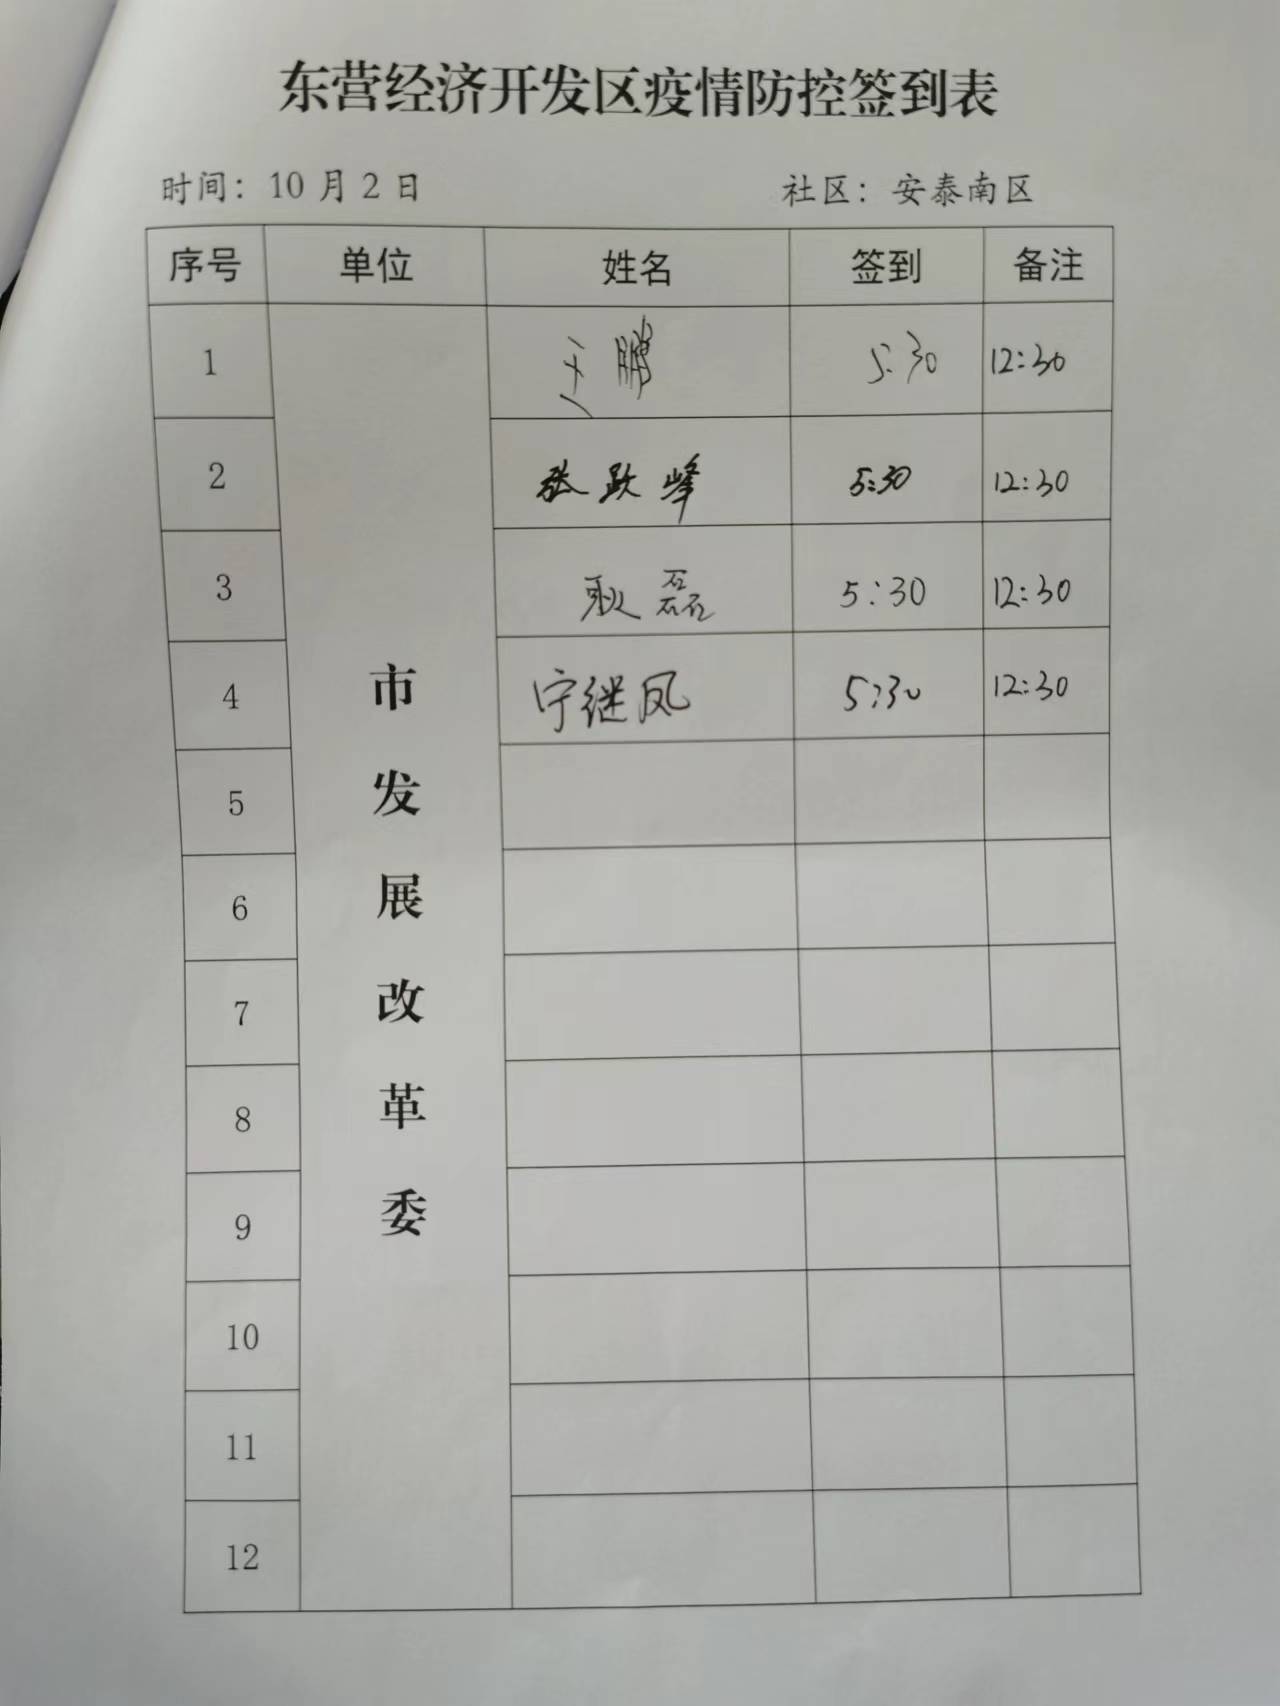 东营经济开发区疫情防控签到表
时间：10月2日 社区：安泰南区
序号 单位 姓名 签到 备注
市发展改革委
1 王鹏 5:30 12:30
2 张跃峰 5:30 12:30
3 耿磊 5:30 12:30
4 宁继凤 5:30 12:30
5
6
7
8
9
10
11
12